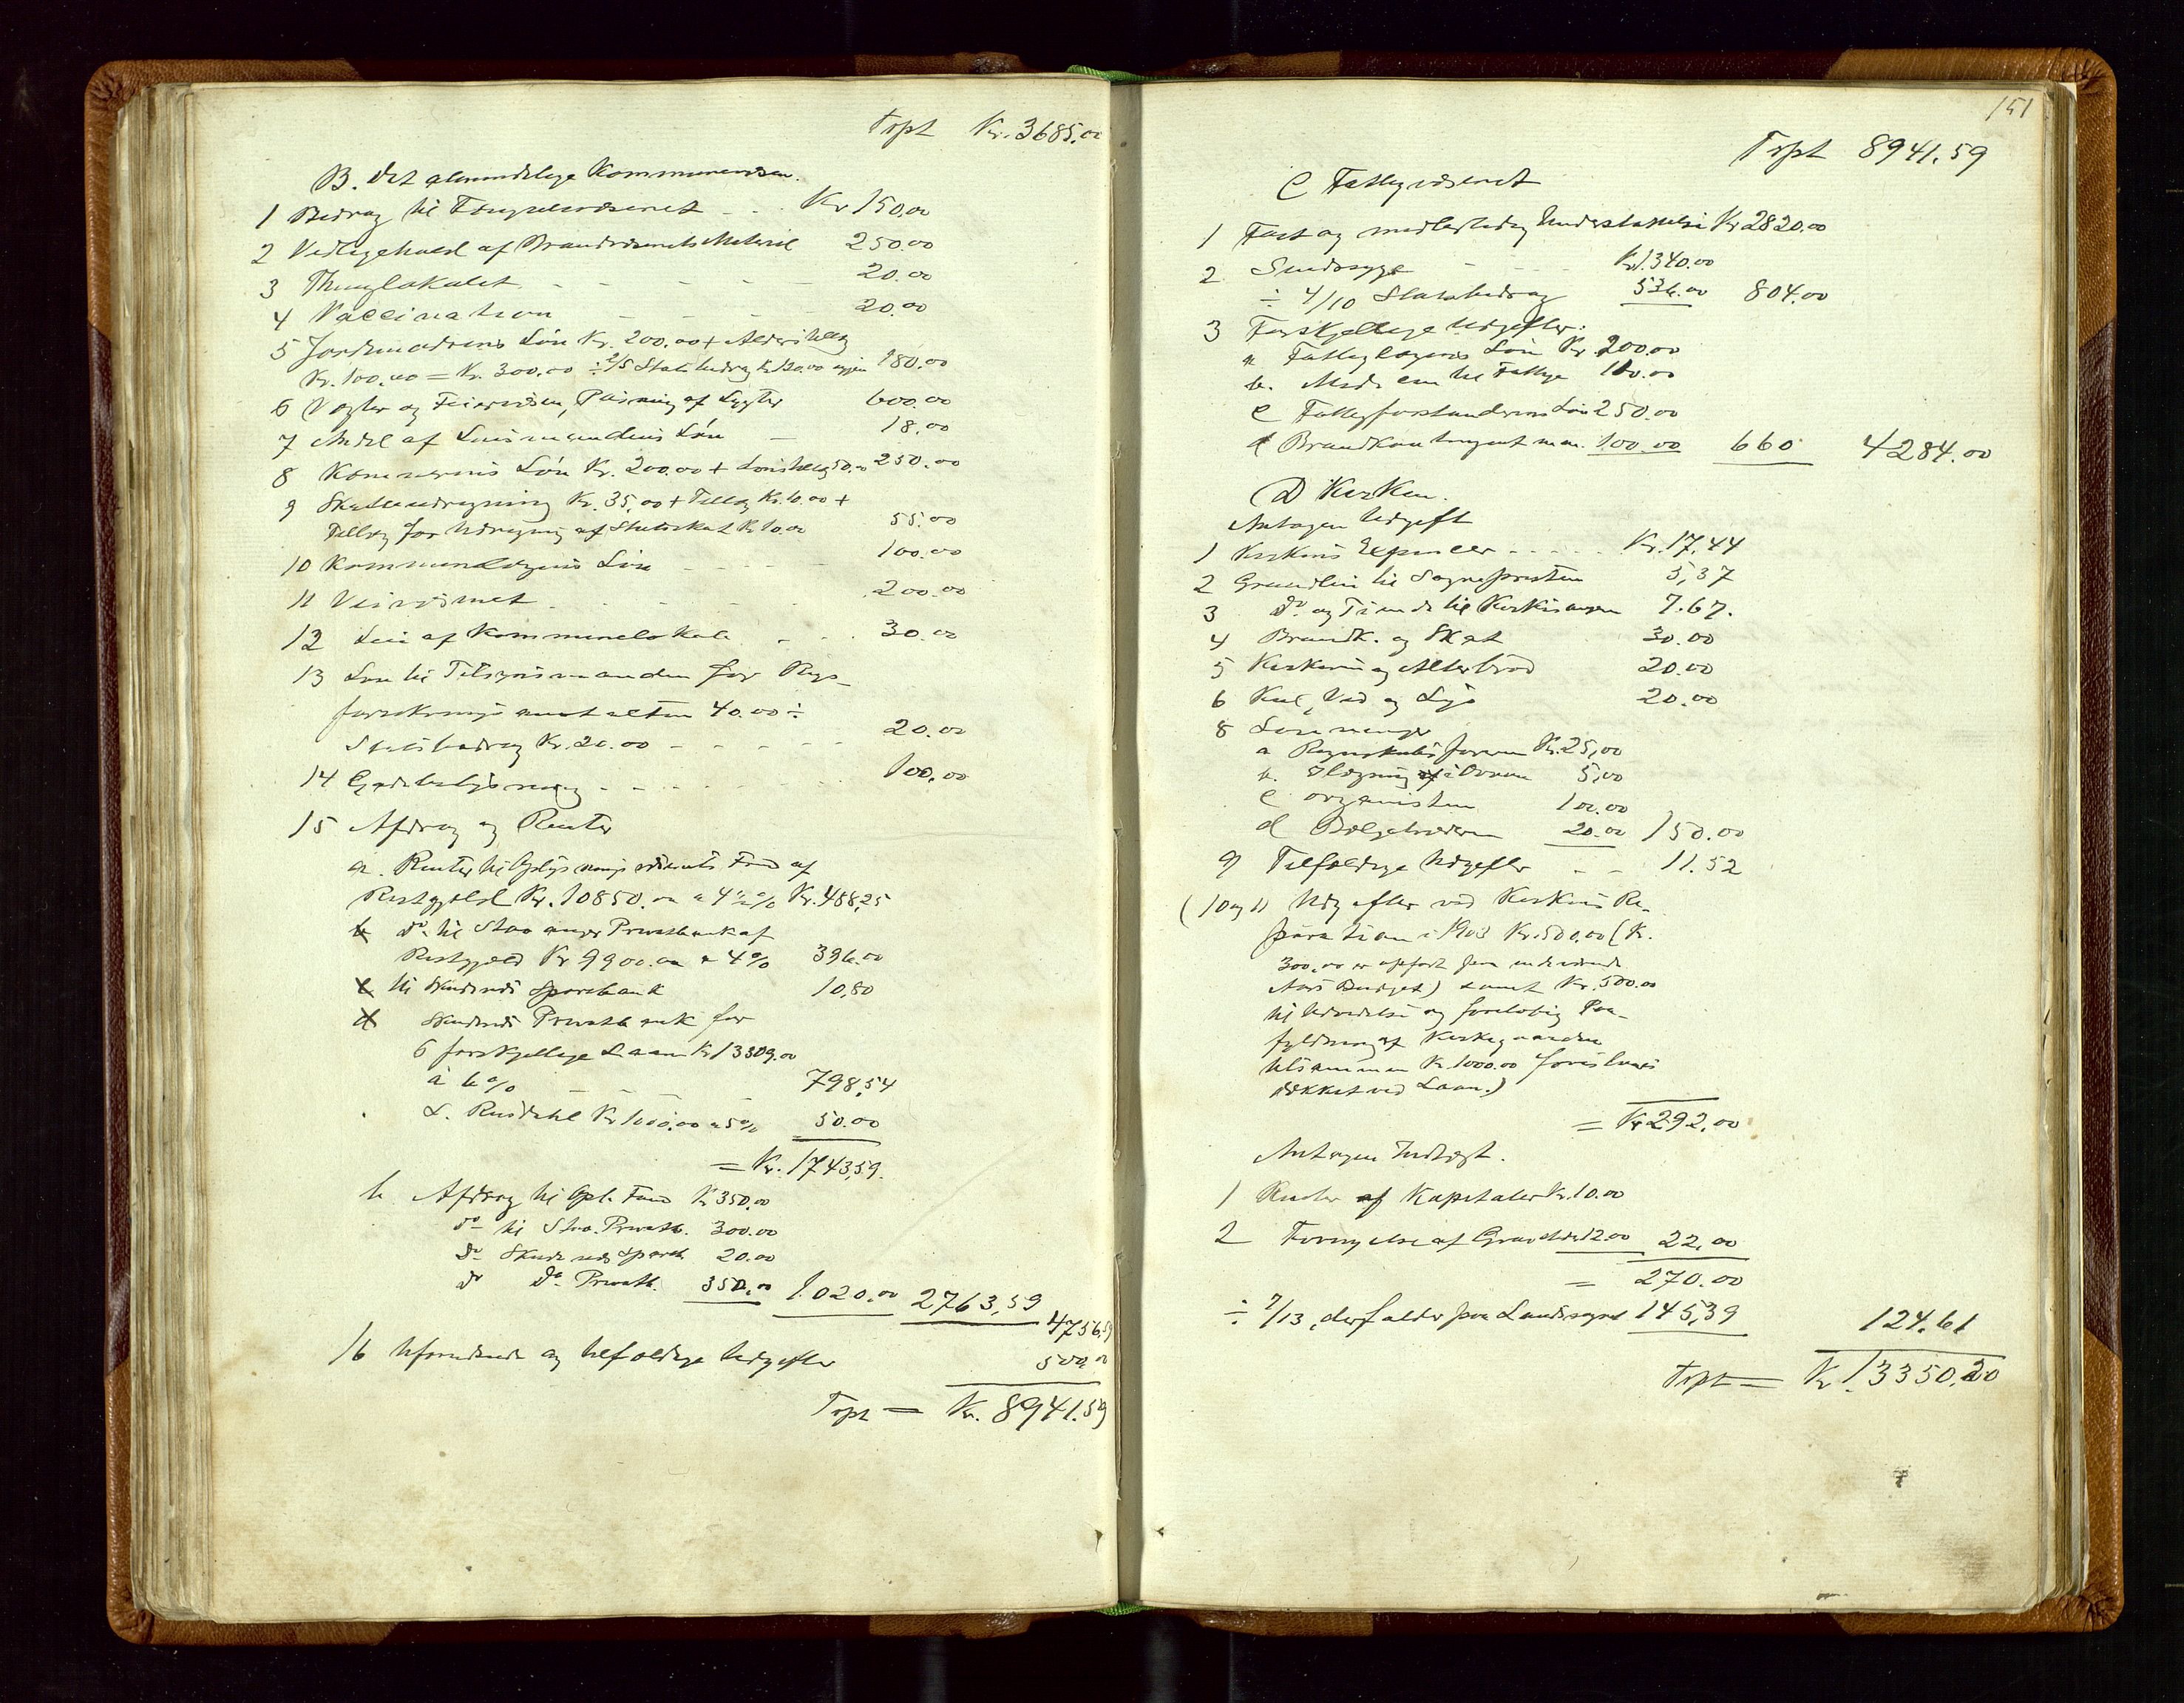 Trpt Kr. 3685.00
B. Det almindelige Kommunevæsen.
1 Bidrag til Fængselvæsenet - - Kr 150,00
2 Vedligehold af Brandvæsenets Materiel 250.00
3 Thinglokalet - - - - - 20.00
4 Vaccination - - - - 20.00
5 Jordmodrens Løn Kr. 200.00 + Alderstillæg
Kr. 100,00 = Kr. 300.00 ÷ 2/5 Statsbidrag Kr 120.00 igjen 180.00
6 Vægter og Feiervæsen, Pasning af Lygter 600.00
7 Andel af Lensmandens Løn - 18.00
8 Kæmnerens Løn Kr. 200.00 + Lønstillæg 50.00 250.00
9 Skatteindragning Kr. 35,00 + Tillæg Kr. 10.00 +
Tillæg for Indragning af Statsskat Kr 10.00 55.00
10 Kommunelægens Løn - - - - 100.00
11 Veivæsenet - - - - 200.00
12 Leie af Kommunelokale - - 30.00
13 Løn til Tilsynsmanden for Rigs-
forsikringsanstalten 40.00 ÷
Statsbidrag Kr. 20.00 - - - - - 20.00
14 Gadebelysning - - - - - 100.00
15 Afdrag og Renter
a. Renter til Oplysningsvæsenets Fond af
Restgjeld Kr. 10850.00 a 4½% Kr. 488,25
b do til Stavanger Privatbank af
Restgjæld Kr 9900.00 a 4% 396.00
c til Skudenes Sparebank 10,80
d Skudenes Privatbank for
6 forskjellige Laan Kr 13309.00
à 6% - - - 798,54
L. Rusdahl Kr 1000.00 a 5% 50.00
= Kr. 1743,59.
b Afdrag til Opl. Fond Kr 350.00
do til Stav. Privatb. 300.00
do Skudenes Spareb. 20.00
do do Privatb. 350.00 1.020.00 2763,59
4756,59
16 Uforudseede og tilfældige Udgifter 500.00
Trpt = Kr. 8941.59
151
Trpt 8941.59
C Fattigvæsenet
1 Fast og midlertidig Understøttelse Kr 2820.00
2 Sindssyge - - - Kr 1.340.00
÷ 4/10 Statsbidrag 536.00 804.00
3 Forskjellige Udgifter:
a Fattiglægens Løn Kr. 200.00
b. Medicin til Fattige 110.00
c Fattigforstanderens Løn 250.00
d Brandkontingent m.m. 100.00 660 4284.00
D Kirken.
Antagen Udgift
1 Kirkens Expencer - - - - - Kr. 17,44
2 Grundleie til Sognepresten 5,37
3 do og Tiende til Kirkesangen 7.67.
4 Brandk. og Skat 30.00
5 Kirkevin og Alterbrød 20.00
6 Kul, Ved og Lys 20.00
8 Lønninger
a Regnskabsføreren Kr. 25,00
b. Ilægning i Ovnen 5,00
c organisten 100.00
d Bælgetræderen 20.00 150.00
9 Tilfældige Udgifter - - 11.52
(10 og 11 Udgifter ved Kirkens Re-
paration i 1903 Kr. 500.00 (Kr.
300,00 er opført paa indeværende
Aars Budget) samt Kr. 500.00
til Udvidelse og foreløbig Paa-
fyldning af Kirkegaarden
tilsammen Kr. 1000.00 foreslaaes
dækket ved Laan.)
= Kr 292,00
Antagen Indtægt.
1 Renter af Kapitaler Kr. 10.00
2 Fornyelse af Gravsteder 12.00 22,00
= 270.00
÷ 7/13, der falder paa Landsognet 145,39 124.61
Trpt = Kr 13350.20